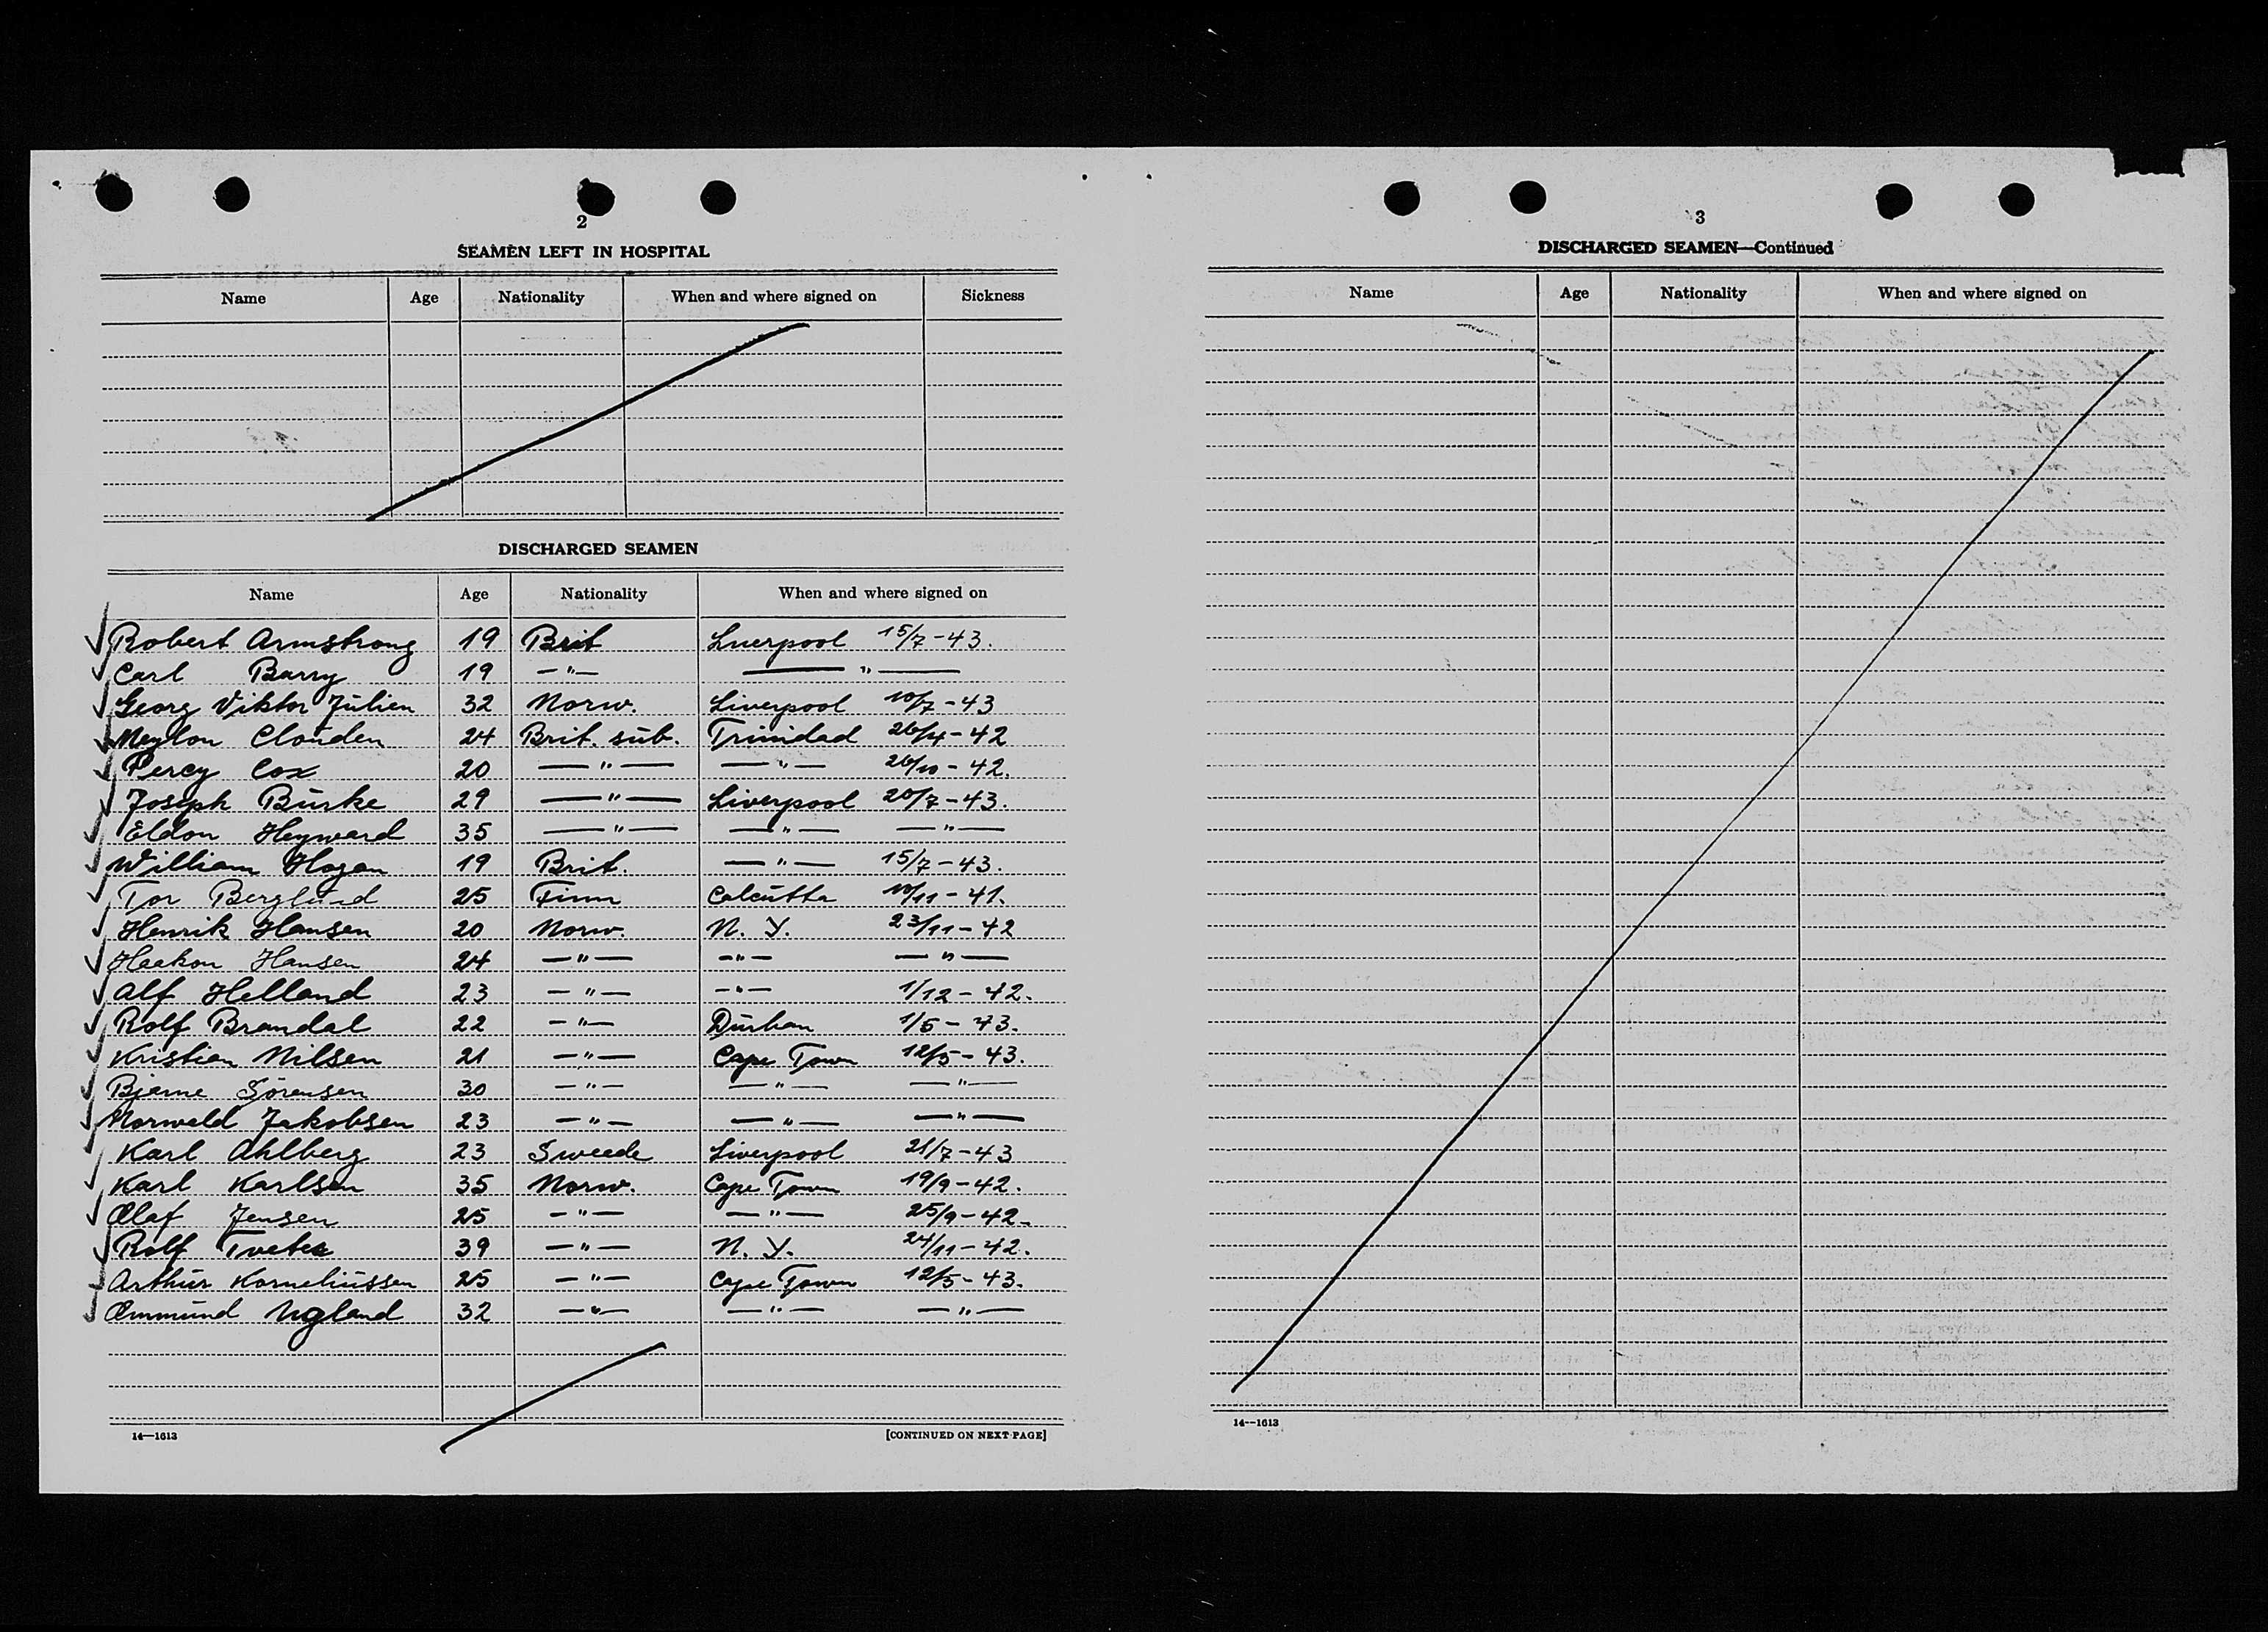 2
SEAMEN LEFT IN HOSPITAL
Name Age Nationality When and where signed on Sickness
DISCHARGED SEAMEN
Name Age Nationality When and where signed on
Robert Armstrong 19 Brit Liverpool 15/7-43.
Carl Barry 19 —"— —"—
Georg Viktor Julien 32 Norw. Liverpool 10/7-43
Neylon Clouden 24 Brit. sub. Trinidad 26/4-42
Percy Cox 20 —"— —"— 26/10-42.
Joseph Burke 29 —"— Liverpool 20/7-43.
Eldon Heyward 35 —"— —"— —"—
William Hogan 19 Brit. —"— 15/7-43.
Tor Berglund 25 Finn Calcutta 10/11-41.
Henrik Hansen 20 Norw. N. Y. 23/11-42
Haakon Hansen 24 —"— —"— —"—
Alf Helland 23 —"— —"— 1/12-42.
Rolf Brandal 22 —"— Durban 1/5-43.
Kristian Nilsen 21 —"— Cape Town 12/5-43.
Bjarne Sørensen 30 —"— —"— —"—
Norwald Jakobsen 23 —"— —"— —"—
Karl Ahlberg 23 Sweede Liverpool 21/7-43
Karl Karlsen 35 Norw. Cape Town 19/9-42.
Olaf Jensen 25 —"— —"— 25/9-42.
Rolf 39 —"— N. Y. 24/11-42.
Arthur Korneliussen 25 —"— Cape Town 12/5-43.
Ommund Ugland 32 —"— —"— —"—
14—1613 [CONTINUED ON NEXT PAGE]
3
DISCHARGED SEAMEN—Continued
Name Age Nationality When and where signed on
14—1613